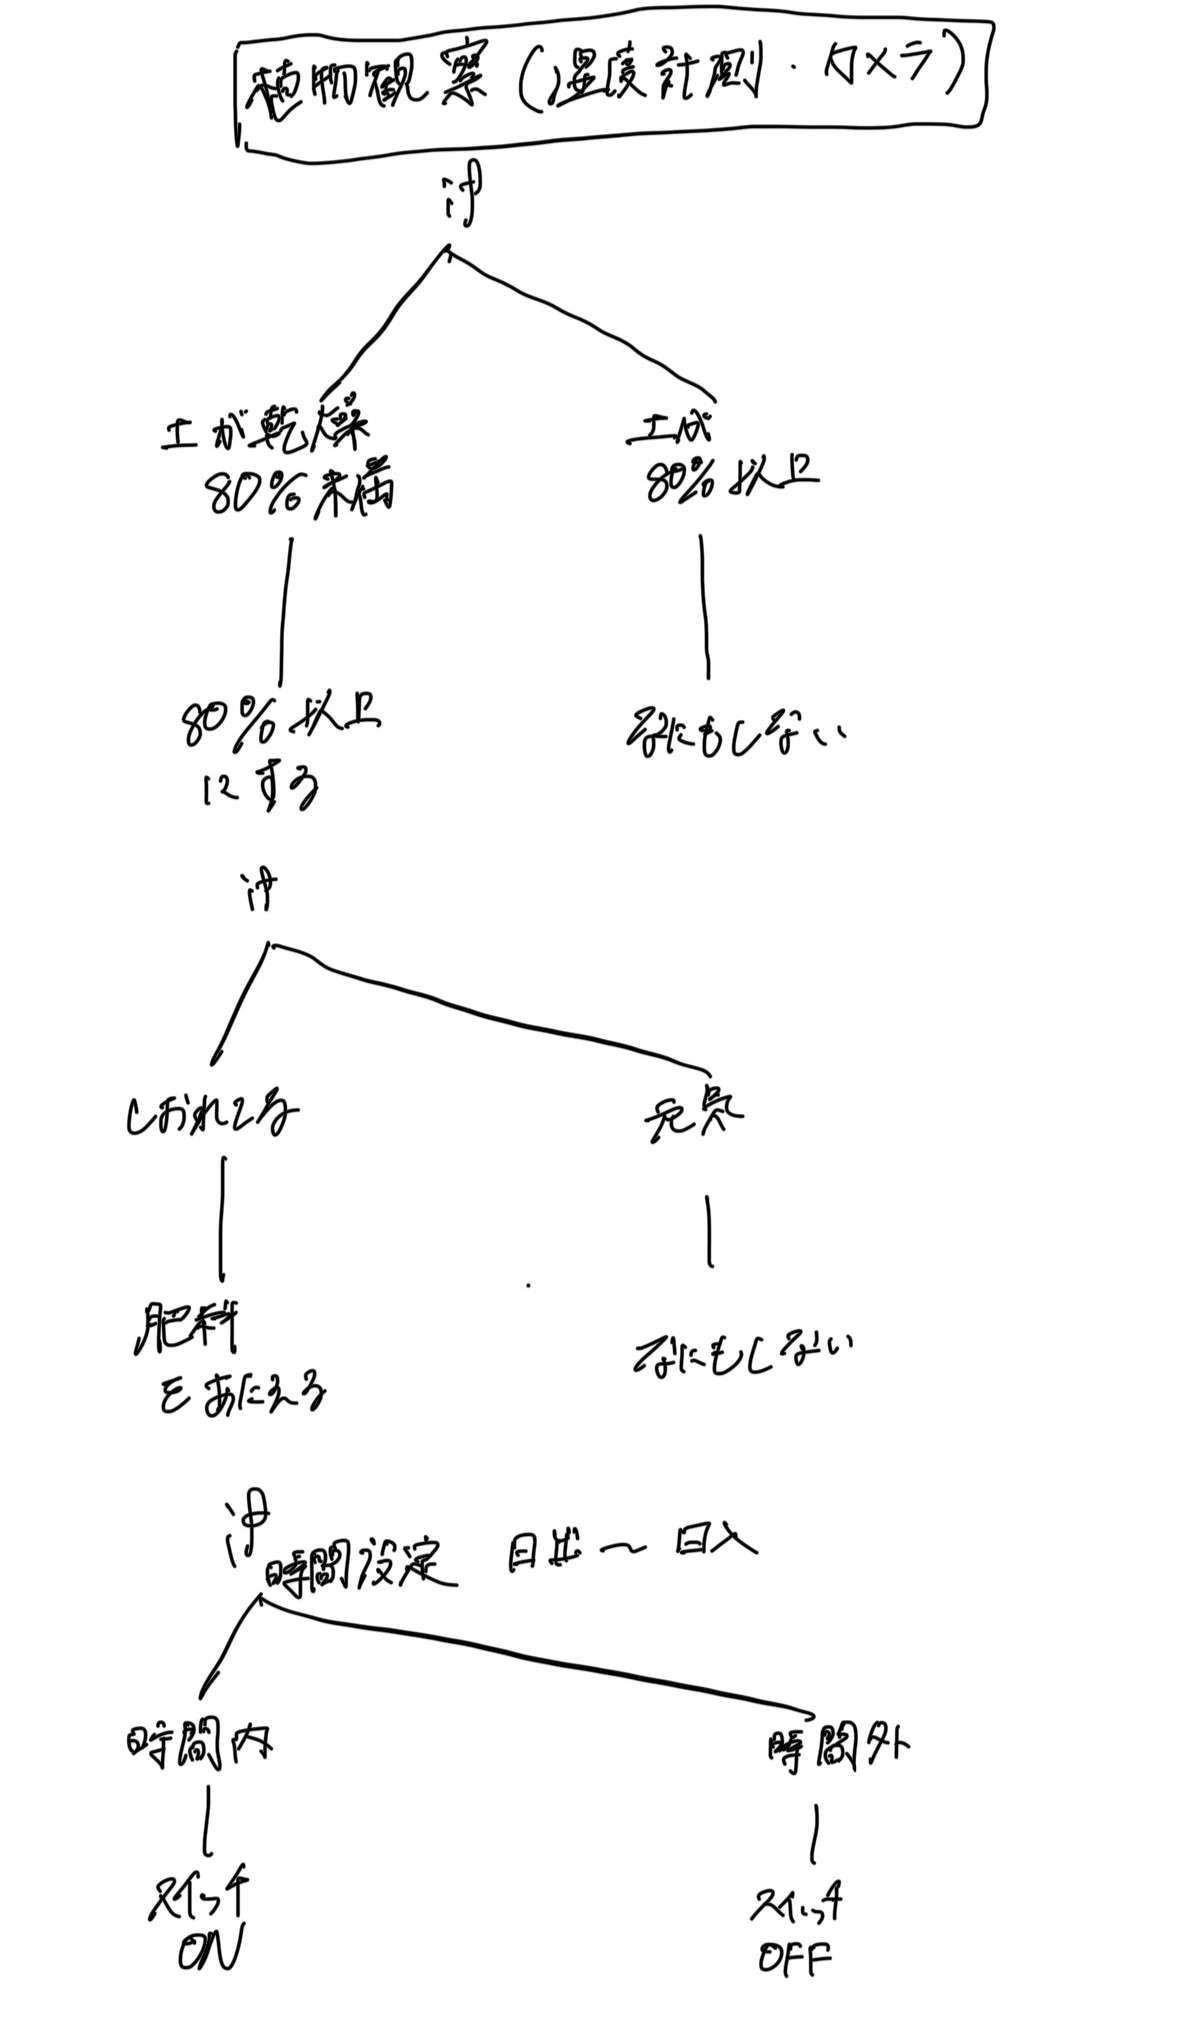 植物観察(湿度計測・カメラ)
if
土が乾燥
80%未満
土が
80%以上
80%以上
にする
なにもしない
if
しおれてる
元気
肥料
をあたえる
なにもしない
if
時間設定 日出～日入
時間内
時間外
スイッチ
ON
スイッチ
OFF